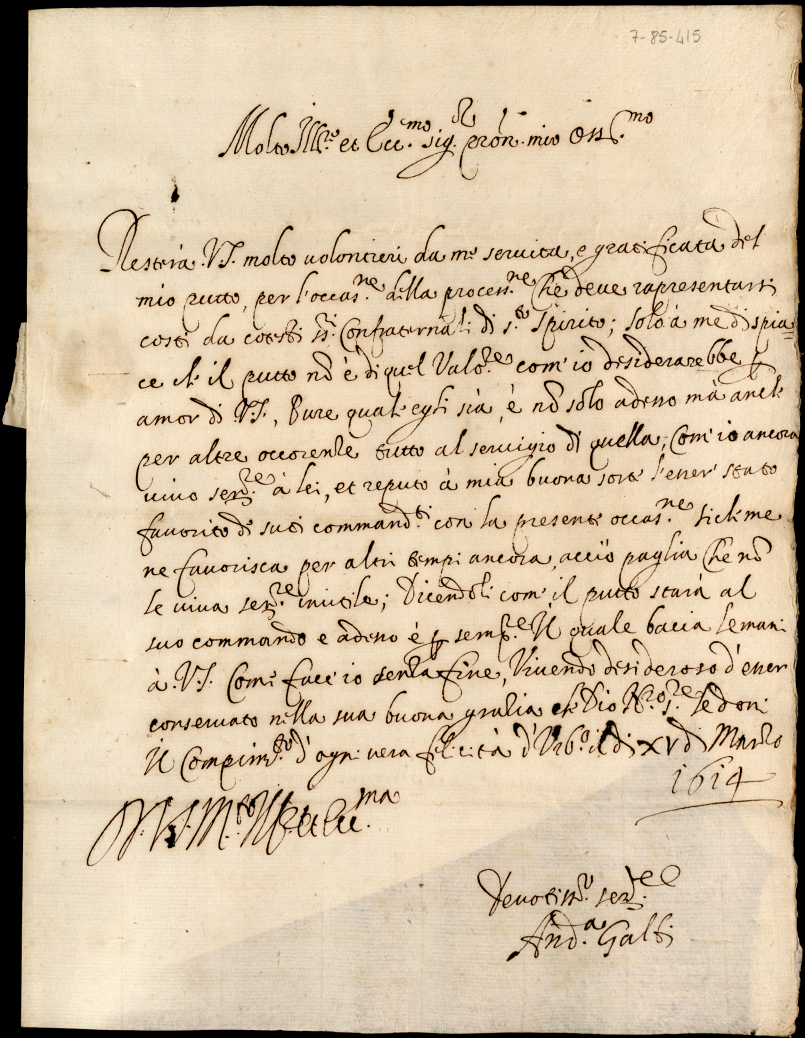 7-85-415
Molto Ill.re et Ecc.mo sig.r pron. mio oss.mo
Resterà V.S. molto volontieri da me servita, e gratificata del
mio putto, per l'occas.ne della process.ne che deve rapresentarsi
costi da cotesti ss.ri Confraternali di s.to spirito; solo à me dispia=
ce che il putto nō è di quel valo.re com'io desiderarebbe p
amor di V.S., Pure quale egli sia, è nō solo adesso mà anche
per altre occorenze tutto al servigio di quella, com'io ancora
vivo ser.re à lei, et reputo à mia buona sorte l'esser stato
favorito de suoi command.ti con la presente occas.ne siche me
ne favorisca per altri tempi ancora, acciò paglia che nō
le viva ser.re inutile; Dicendoli com'il putto starà al
suo commando e adesso è p semp.e Il quale bacia le mani
à V.S. Come facc'io senza fine, Vivendo desideroso d'esser
conservato nella sua buona grazia che Dio N.ro s.re le doni
Il Compim.to d'ogni vera felicità d'Urb.o il dì XV di Marzo
1614
D. V.S. M.to Ill.re et Ecc.ma
Devotiss.o ser.re
And.a Galli